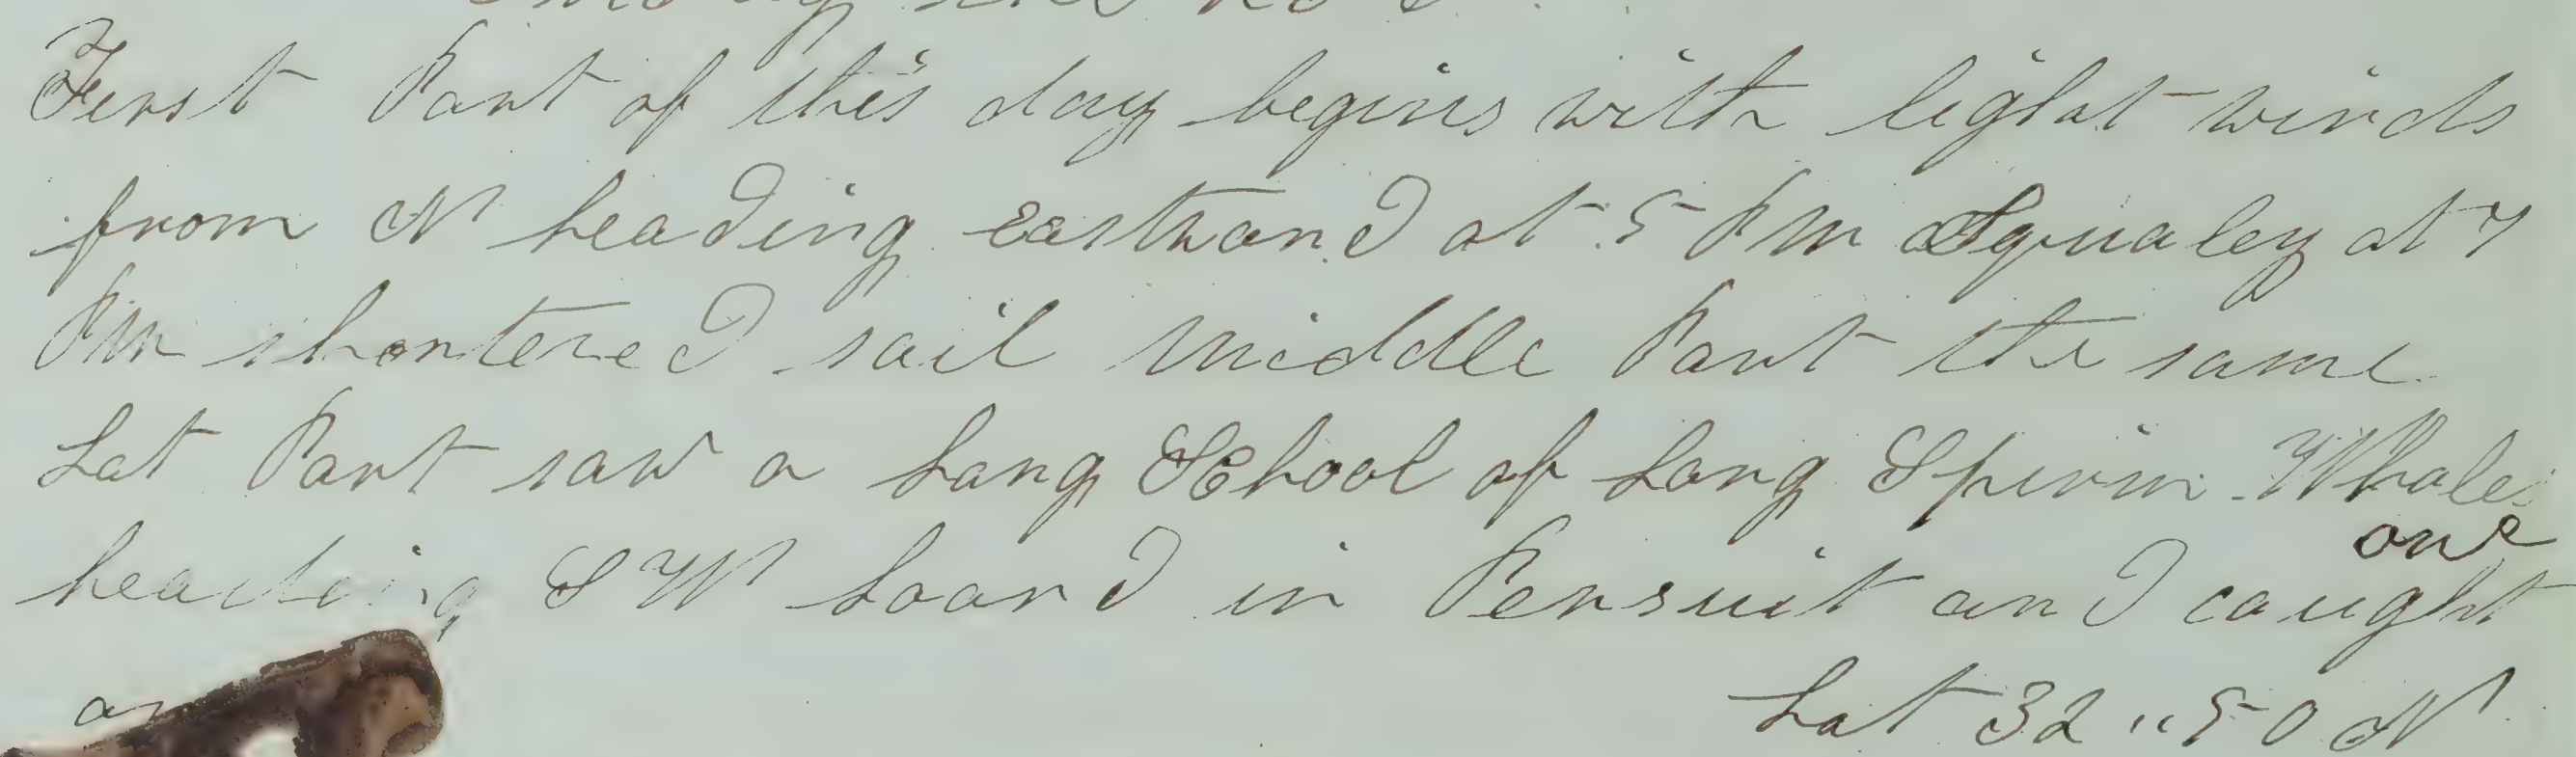 First Part of this day begins with light winds
from N heading eastward at 5 PM Squaley at 7
PM shortened sail middle Part the same
Lat Part saw a Larg School of Larg Spirm Whales
heading SW Loard in Persuit and caught one
an
Lat 32 " 50 N